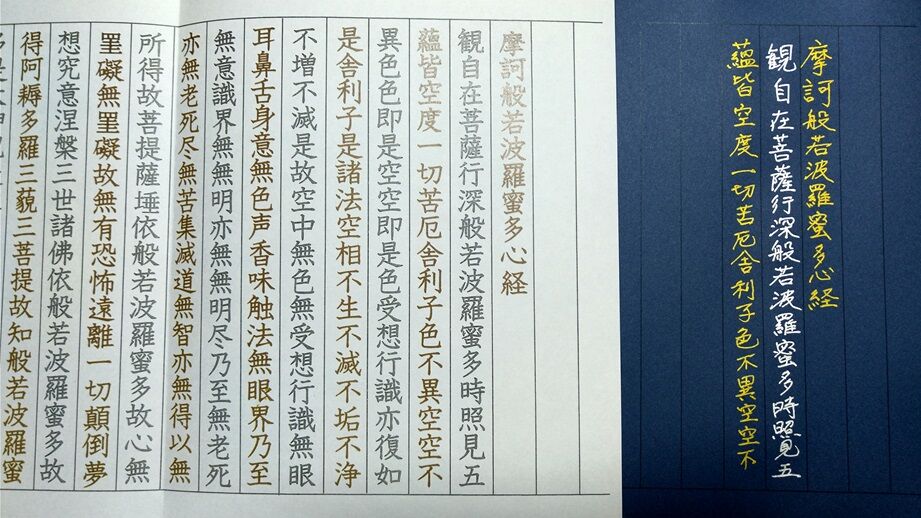 摩訶般若波羅蜜多心経
観自在菩薩行深般若波羅蜜多時照見五
蘊皆空度一切苦厄舎利子色不異空空不
摩訶般若波羅蜜多心経
観自在菩薩行深般若波羅蜜多時照見五
蘊皆空度一切苦厄舎利子色不異空空不
異色色即是空空即是色受想行識亦復如
是舎利子是諸法空相不生不滅不垢不浄
不増不減是故空中無色無受想行識無眼
耳鼻舌身意無色声香味触法無眼界乃至
無意識界無無明亦無無明尽乃至無老死
亦無老死尽無苦集滅道無智亦無得以無
所得故菩提薩埵依般若波羅蜜多故心無
罣礙無罣礙故無有恐怖遠離一切顛倒夢
想究竟涅槃三世諸佛依般若波羅蜜多故
得阿耨多羅三藐三菩提故知般若波羅蜜